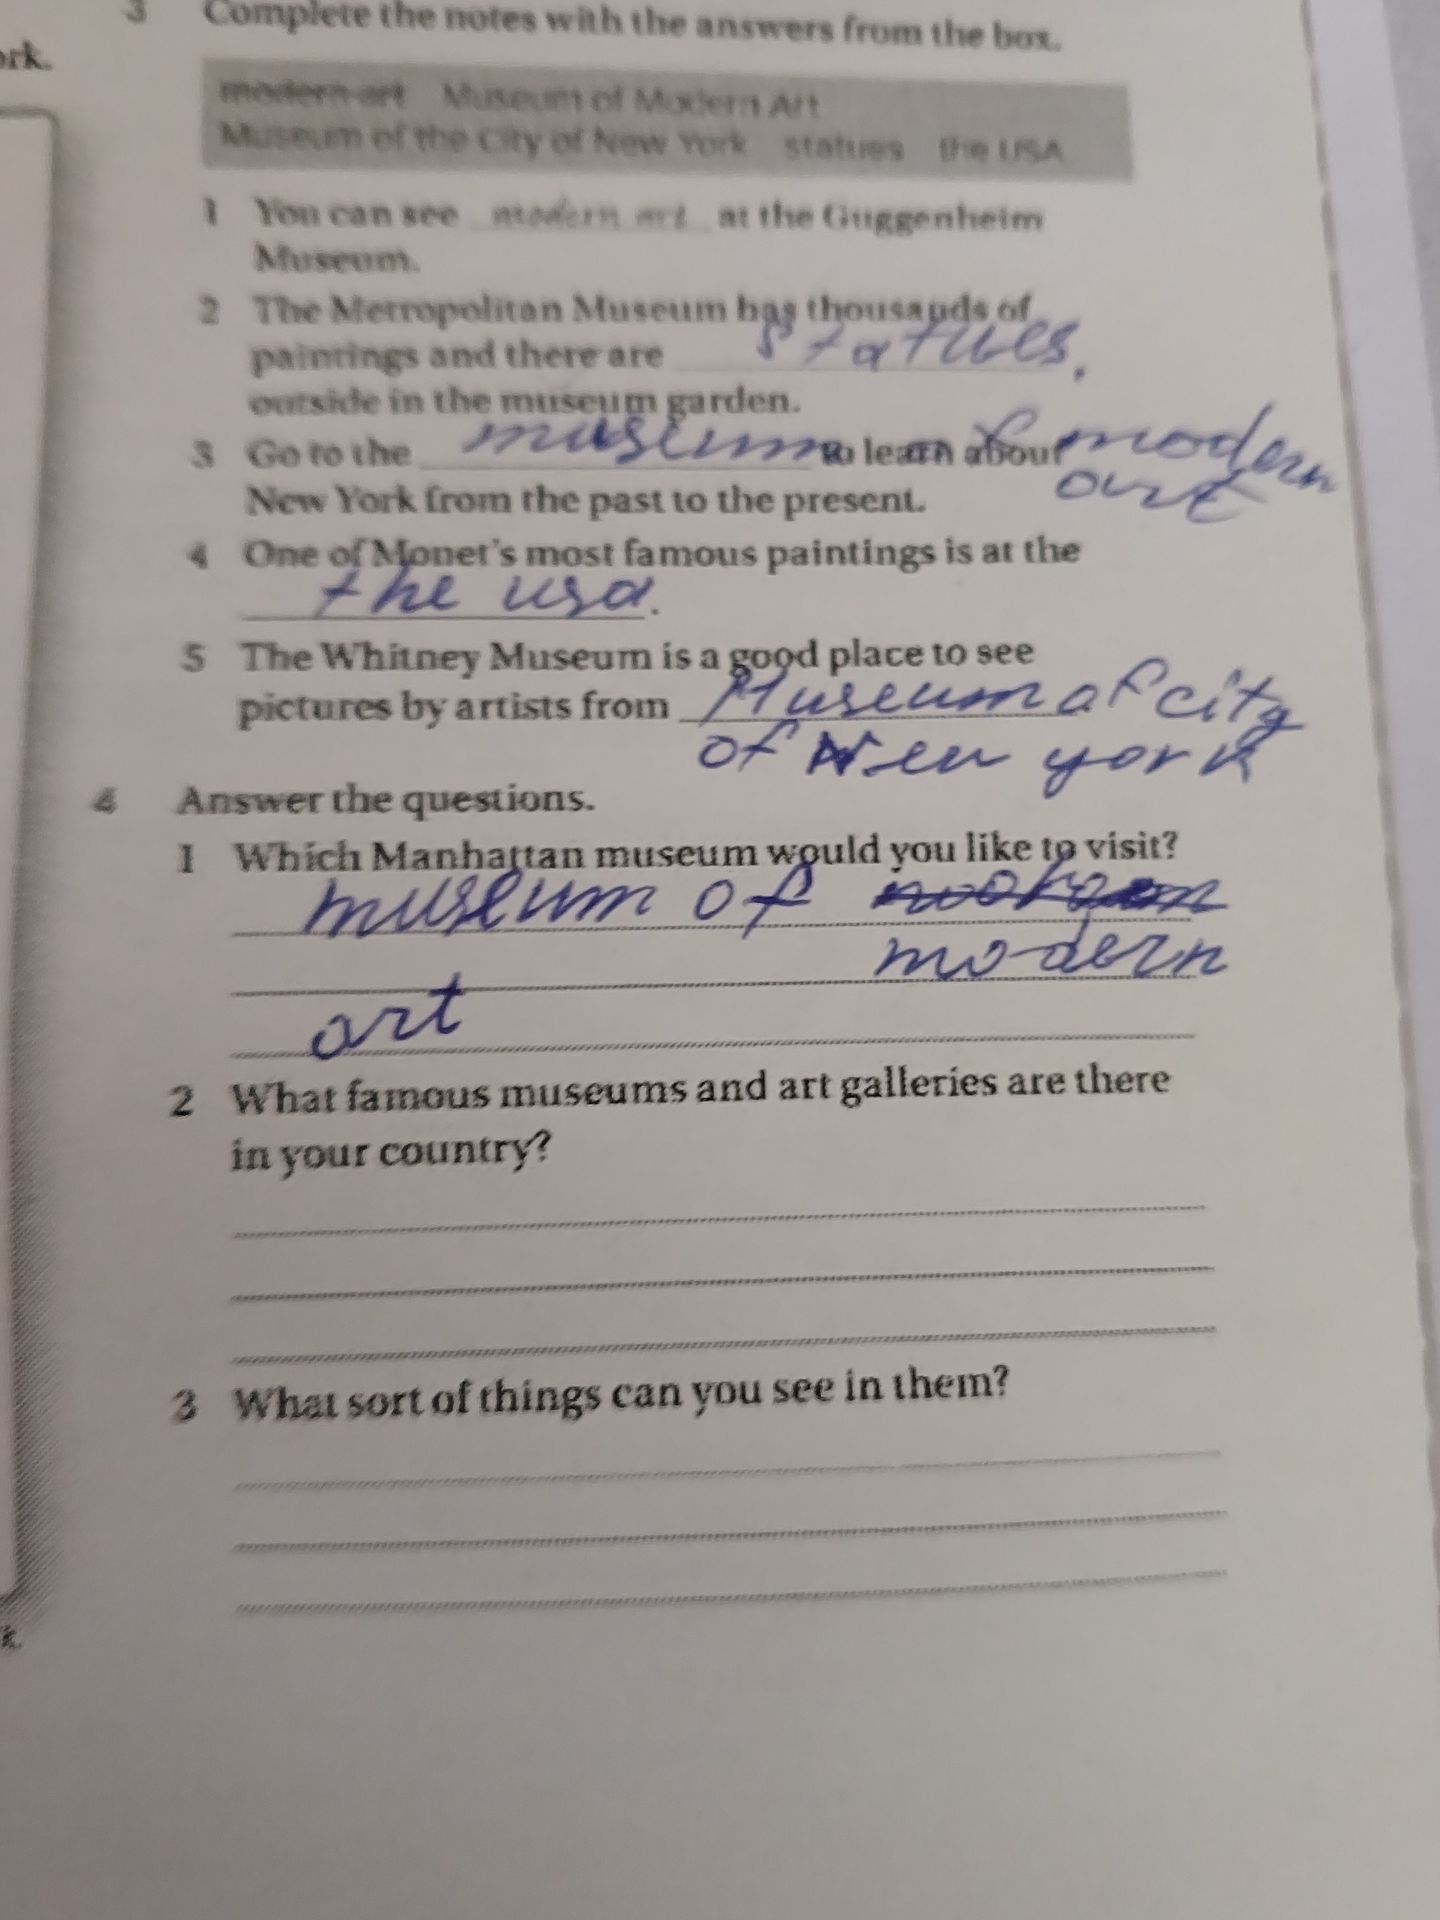 ork.
3 Complete the notes with the answers from the box.
modern art Museum of Modern Art
Museum of the City of New York statues the USA
1 You can see modern art at the Guggenheim
Museum.
2 The Metropolitan Museum has thousands of
paintings and there are statues.
outside in the museum garden.
3 Go to the museum of modern to learn about
art
New York from the past to the present.
4 One of Monet's most famous paintings is at the
the usa.
5 The Whitney Museum is a good place to see
pictures by artists from Museum of city
of New york
4 Answer the questions.
1 Which Manhattan museum would you like to visit?
museum of
modern
art
2 What famous museums and art galleries are there
in your country?
3 What sort of things can you see in them?
k.